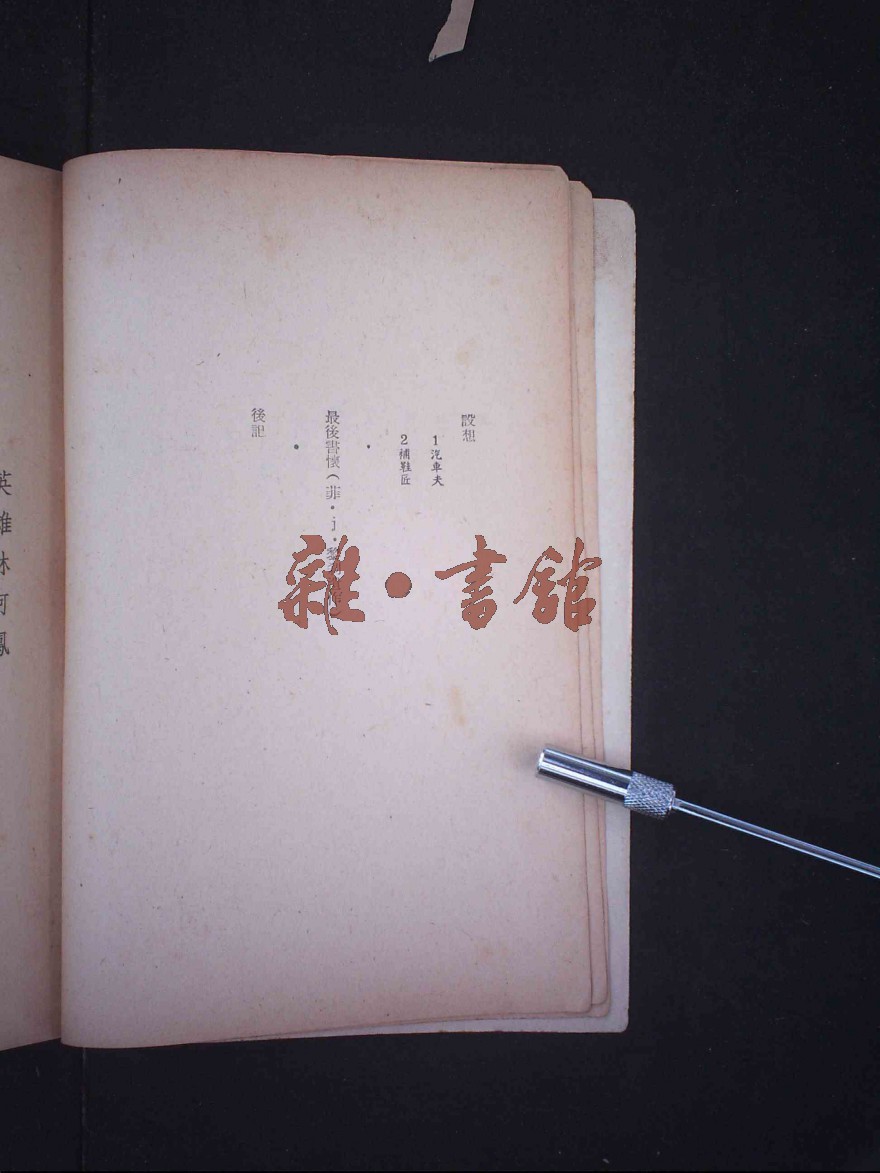 設想
1 汽車夫
2 補鞋匠
•
最後書懷(菲•j•黎
•
後記
英雄林阿鳳
雜•書館